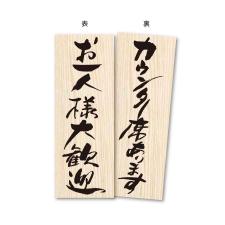 表
お一人様大歓迎
裏
カウンター席あります